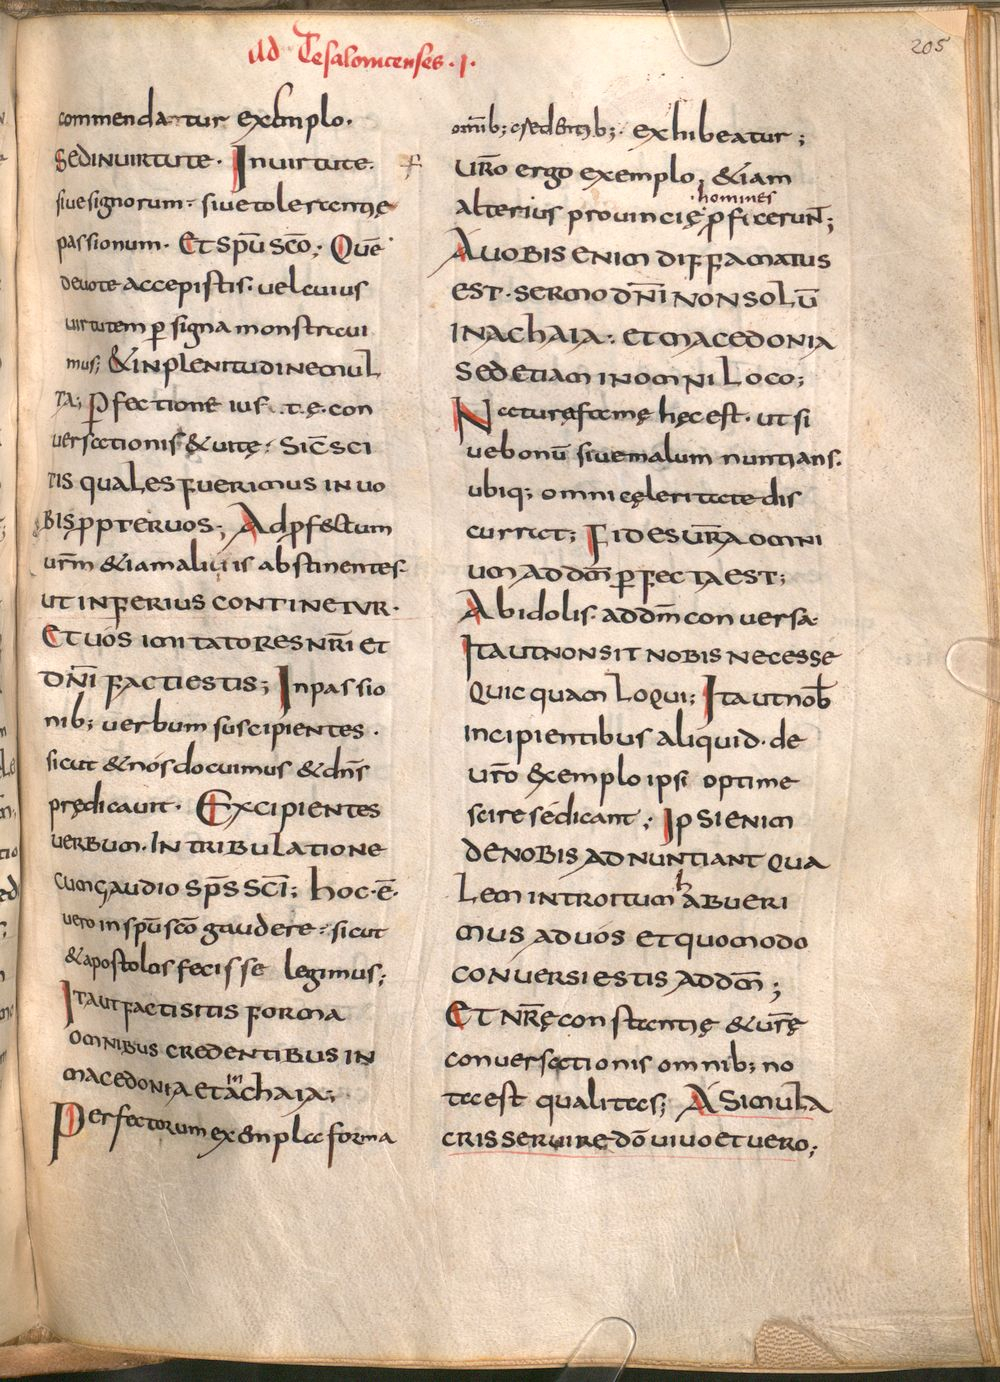 Ad Tesalonicenses · I ·
205
commendatur exemplo ·
Sed in uirtute · In uirtute ·
siue signorum · siue tolerentię
passionum · Et sp̄u sc̄o ; Quē
deuote accepistis · uel cuius
uirtutem ꝑ signa monstraui
mus ; & in plenitudine mul
ta ; Perfectione con
uersationis & uitę · Sic̄ sci
tis quales fuerimus in uo
bis ꝓpter uos ; Ad ꝑfectum
ur̄m & iam aliuis abstinentes
ut inferius continetur ·
Et uos imitatores nr̄i et
dn̄i facti estis ; In passio
nib; uerbum suscipientes ·
sicut & nós docuimus & dn̄s
prędicauit · Excipientes
uerbum · In tribulatione
cum gaudio sp̄s sc̄i ; hoc · ē ·
uero in sp̄u sc̄o gaudere · sicut
& apostolos fecisse legimus ;
Ita ut facti sitis forma
omnibus credentibus in
macedonia et in achaia ;
Perfectorum exempla forma
omīb; credentib; · exhibeatur ;
Ur̄o ergo exemplo ; & iam
· homines
alterius prouincię ꝓficerun̄t ;
A uobis enim diffamatus
est · sermo dn̄i non solū
in achaia · et macedonia
sed etiam in omni loco ;
Natura famę hęc est · ut si
ue bonū siue malum nuntians ·
ubiq; omni cęleritate dis
currat ; Fides ur̄a omni
um ad dm̄ ꝑfecta est ;
Ab idolis · ad dm̄ conuersa ·
Ita ut non sit nobis necesse
quicquam loqui ; Ita ut nob̄
incipientibus aliquid · de
ur̄o exemplo ipsi optime
scire sé dicant ; Ipsi enim
de nobis adnuntiant qua
lem introitum habueri
mus ad uós et quomodo
conuersi estis ad dm̄ ;
Et nr̄ę constantię & ur̄ę
conuersationis omnib; no
ta est qualitas ; A simula
cris seruire dō uiuo et uero ;